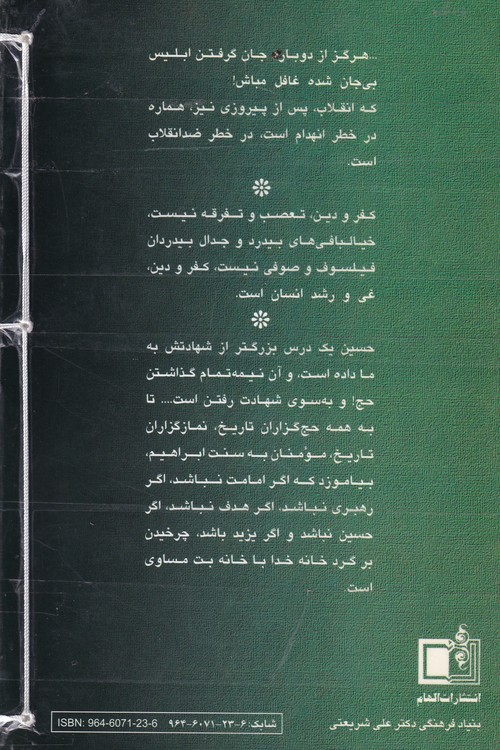 ...هرگز از دوباره جان گرفتن ابلیس
بی‌جان شده غافل مباش!
که انقلاب، پس از پیروزی نیز، هماره
در خطر انهدام است، در خطر ضدانقلاب
است.
کفر و دین، تعصب و تفرقه نیست،
خیالبافی‌های بیدرد و جدال بیدردان
فیلسوف و صوفی نیست، کفر و دین،
غی و رشد انسان است.
حسین یک درس بزرگتر از شهادتش به
ما داده است، و آن نیمه‌تمام گذاشتن
حج! و به‌سوی شهادت رفتن است.... تا
به همه حج‌گزاران تاریخ، نمازگزاران
تاریخ، مؤمنان به سنت ابراهیم،
بیاموزد که اگر امامت نباشد، اگر
رهبری نباشد، اگر هدف نباشد، اگر
حسین نباشد و اگر یزید باشد، چرخیدن
بر گرد خانه خدا با خانه بت مساوی
است.
انتشارات الهام
بنیاد فرهنگی دکتر علی شریعتی
شابک: ۶-۲۳-۶۰۷۱-۹۶۴
ISBN: 964-6071-23-6